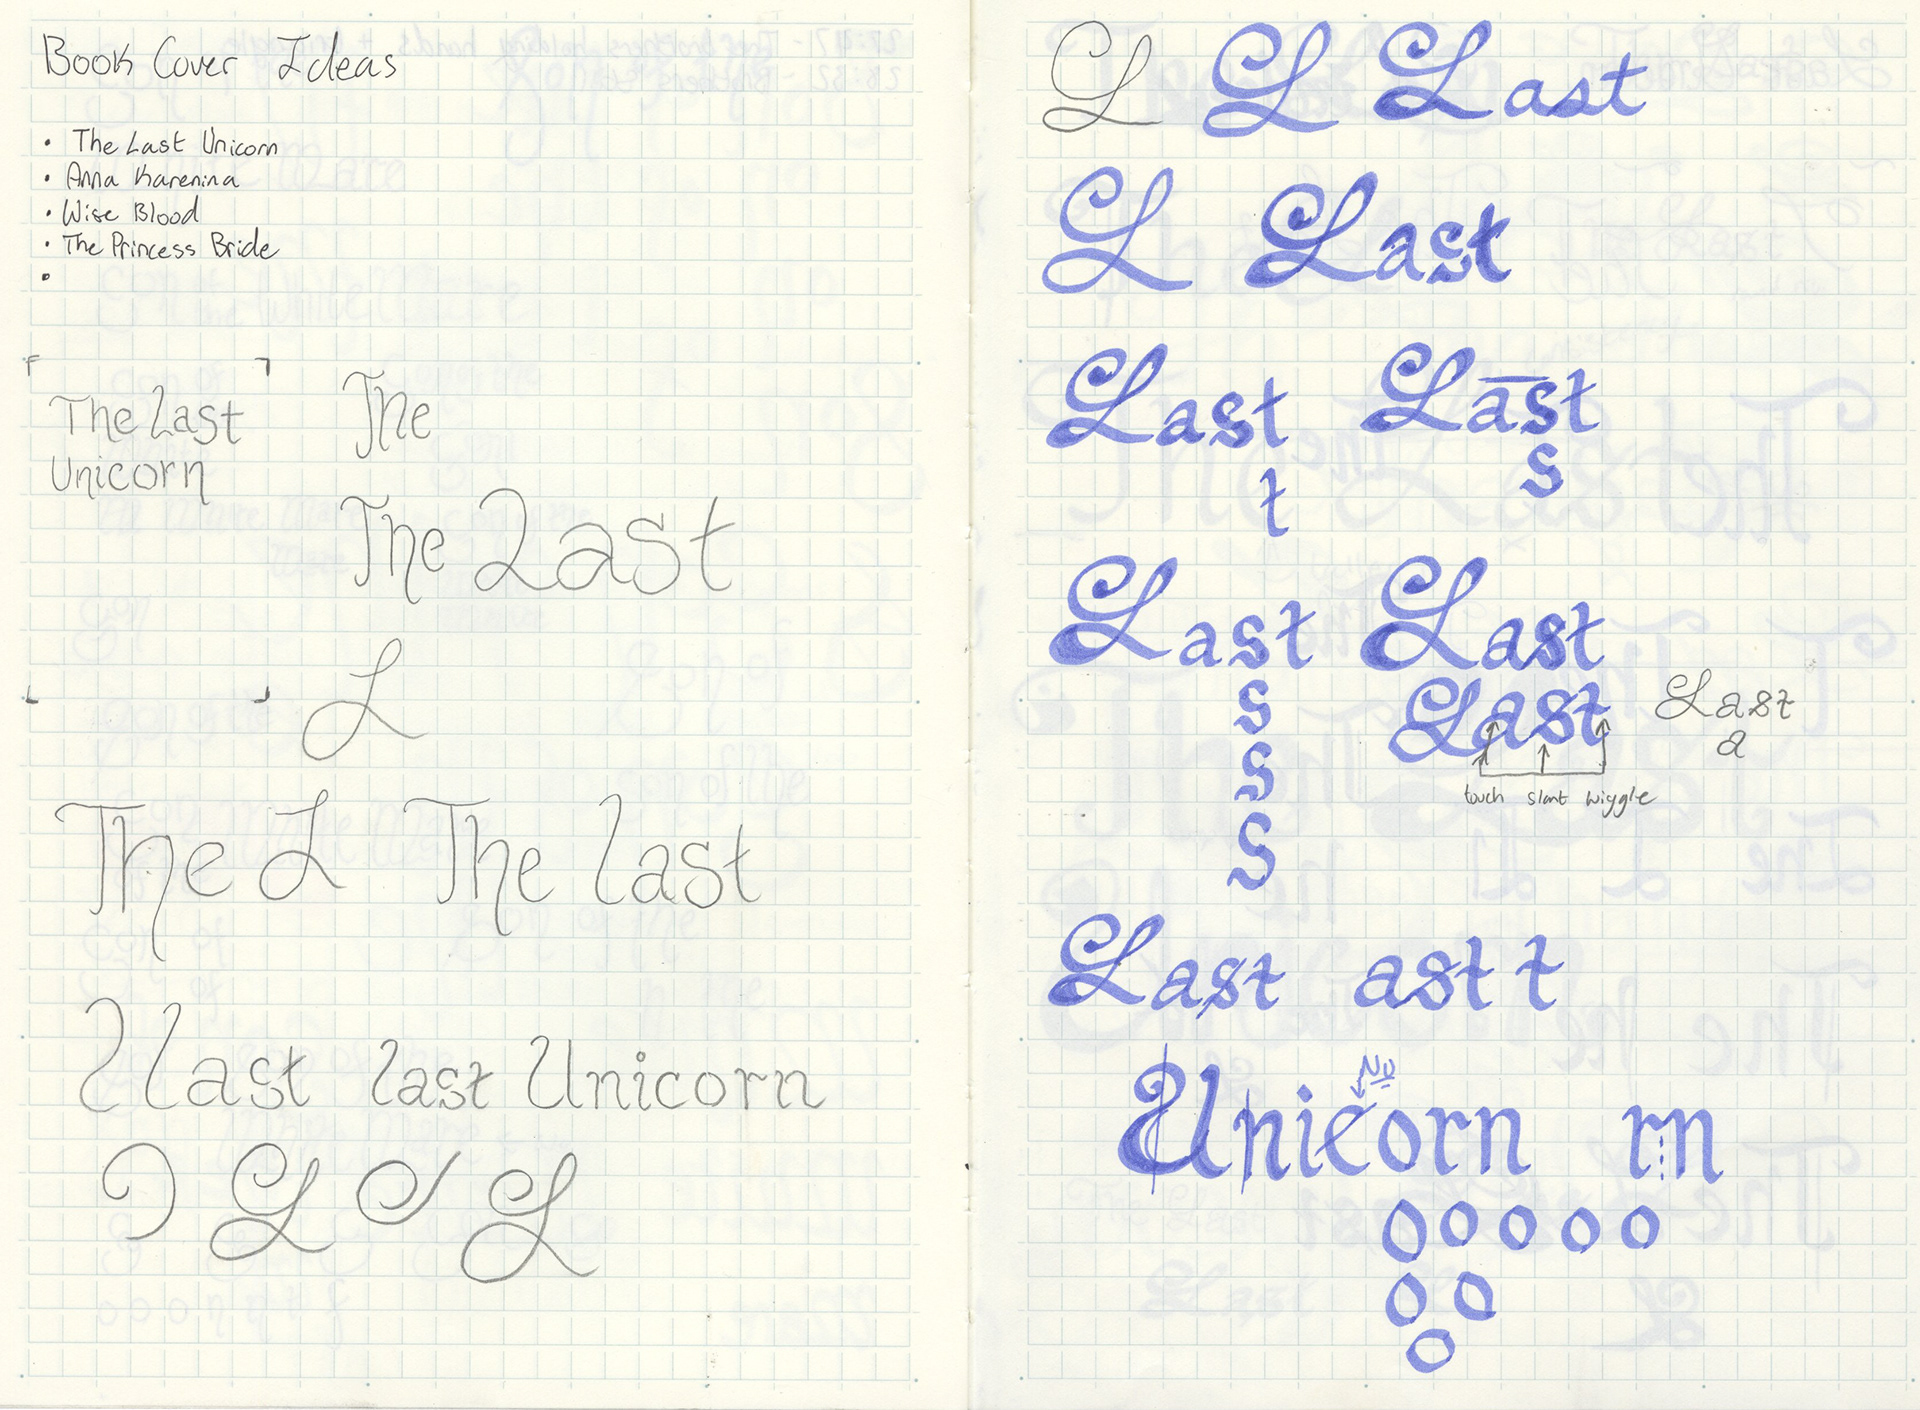 Book Cover Ideas
• The Last Unicorn
• Anna Karenina
• Wise Blood
• The Princess Bride
•
The Last
Unicorn
The
The Last
L
The L The last
l last last Unicorn
L L
L L Last
L Last
Last Last
t s
Last Last
Last Last
a
touch slant wiggle
s
s
s
Last ast t
No
Unicorn rn
o o o o o
o o
o